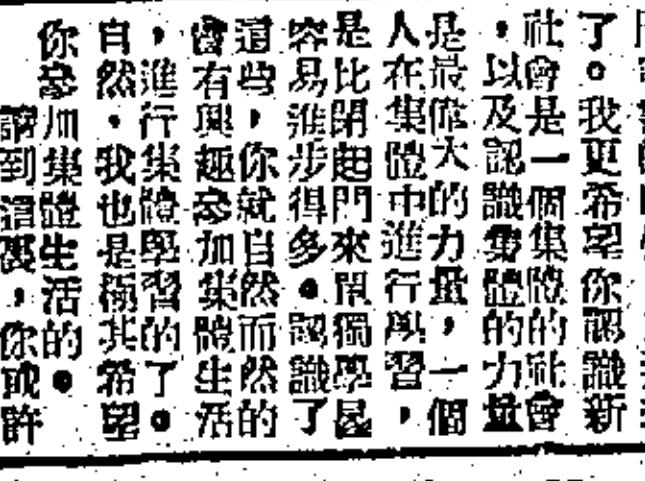 了。我更希望你認識新
社會是一個集體的社會
，以及認識集體的力量
是最偉大的力量，一個
人在集體中進行學習，
是比閉起門來單獨學習
容易進步得多。認識了
這些，你就自然而然的
會有興趣參加集體生活
，進行集體學習的了。
自然，我也是極其希望
你參加集體生活的。
講到這裏，你或許